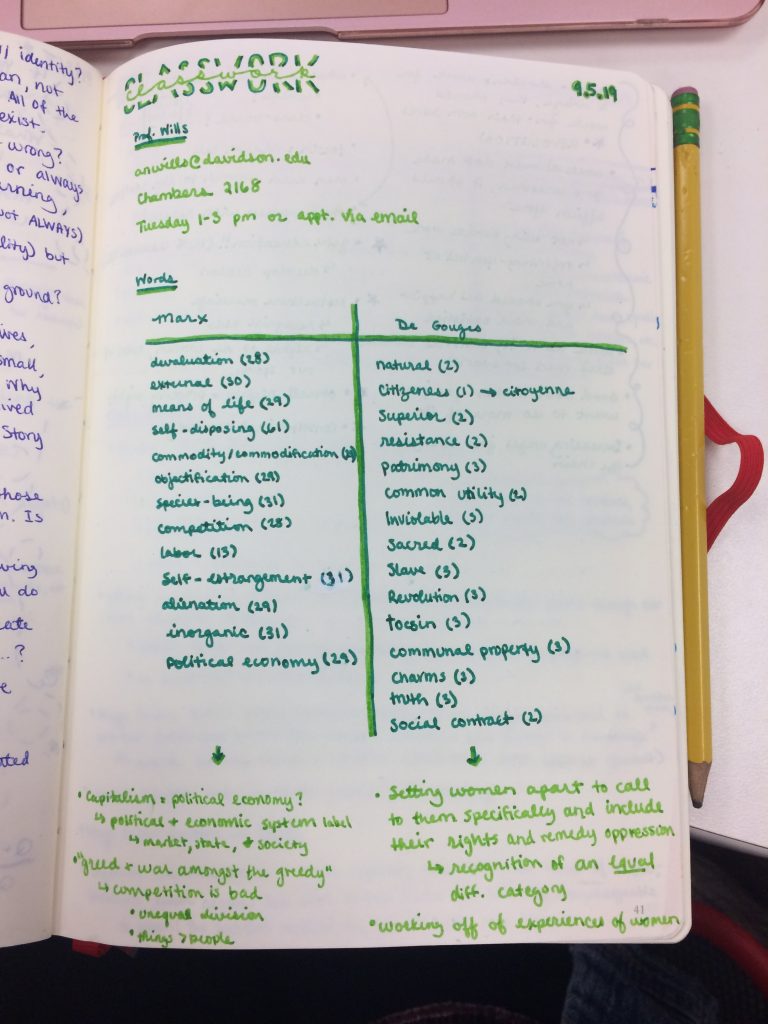 identity?
an, not
All of the
exist.
wrong?
or always
arning,
not ALWAYS)
lity) but
ground?
ives,
small,
Why
ired
Story
hose
n. Is
wing
u do
eate
...?
e
ated
CLASSWORK
classwork
9.5.19
Prof. Wills
anwills@davidson.edu
Chambers 2168
Tuesday 1-3 pm or appt. via email
Words
Marx
devaluation (28)
external (30)
means of life (29)
self-disposing (61)
commodity/commodification
objectification (29)
species-being (31)
competition (28)
labor (13)
Self-estrangement (31)
alienation (29)
inorganic (31)
Political economy (29)
• Capitalism = political economy?
↳ political + economic system label
↳ market, state, + society
• "greed + war amongst the greedy"
↳ competition is bad
• unequal division
• things > people
De Gouges
natural (2)
Citizeness (1) → citoyenne
Superior (2)
resistance (2)
patrimony (3)
common utility (2)
Inviolable (3)
Sacred (2)
Slave (3)
Revolution (3)
tocsin (3)
communal property (3)
charms (3)
truth (3)
Social contract (2)
• Setting women apart to call
to them specifically and include
their rights and remedy oppression
↳ recognition of an equal
diff. category
• working off of experiences of women
41